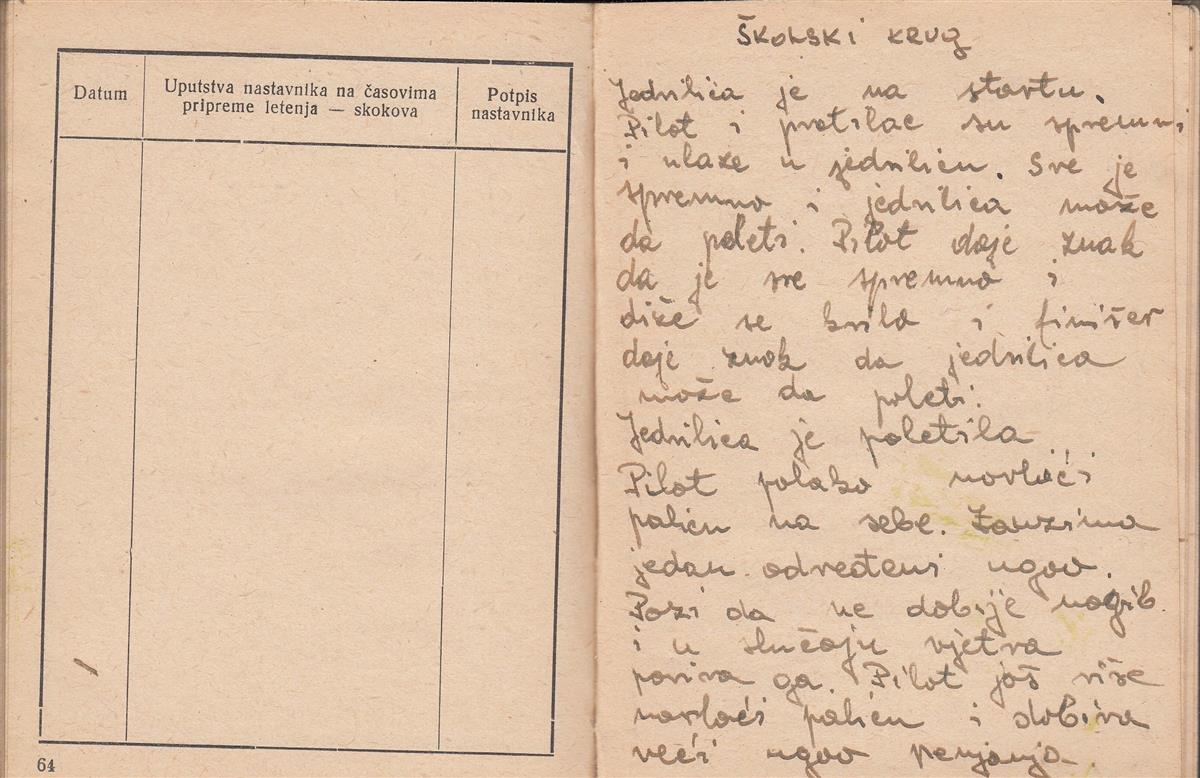 Datum
Uputstva nastavnika na časovima
pripreme letenja — skokova
Potpis
nastavnika
64
ŠKOLSKI KRUG
Jedrilica je na startu.
Pilot i protilac su spremni
i ulaze u jedrilicu. Sve je
spremno i jedrilica može
da poleti. Pilot daje znak
da je sve spremno i
diže se krilo i finišer
daje znak da jedrilica
može da poleti.
Jedrilica je poletila
Pilot polako navlači
palicu na sebe. Zauzima
jedan određeni ugao.
Pazi da ne dobije nagib
i u slučaju vjetra
pariva ga. Pilot još više
navlači palicu i dobiva
veći ugao penjanja.